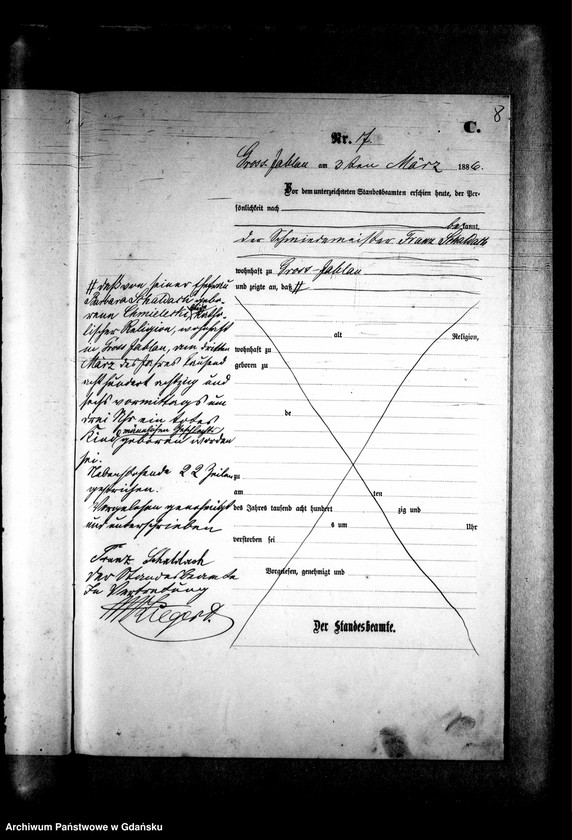 8
C.
Nr. 7.
Gross Jablau am 3ten März 1886.
Vor dem unterzeichneten Standesbeamten erschien heute, der Per-
sönlichkeit nach
bekannt,
der Schmiedemeister Franz Schaldach
wohnhaft zu Gross-Jablau
und zeigte an, daß #
# daß von seiner Ehefrau
Barbara Schaldach gebo-
renen Chmielecki, katho-
lischer Religion, wohnhaft
in Gross Jablau, am dritten
März des Jahres tausend
achthundert achtzig und
sechs vormittags um
drei Uhr ein todtes
Kind männlichen Geschlechts geboren worden
sei.
Nebenstehende 22 Zeilen
gestrichen.
Vorgelesen genehmigt
und unterschrieben
Franz Schaldach
Der Standesbeamte
In Vertretung
alt Religion,
wohnhaft zu
geboren zu
de
zu
am ten
des Jahres tausend acht hundert zig und
s um Uhr
verstorben sei
Vorgelesen, genehmigt und
Der Standesbeamte.
Archiwum Państwowe w Gdańsku